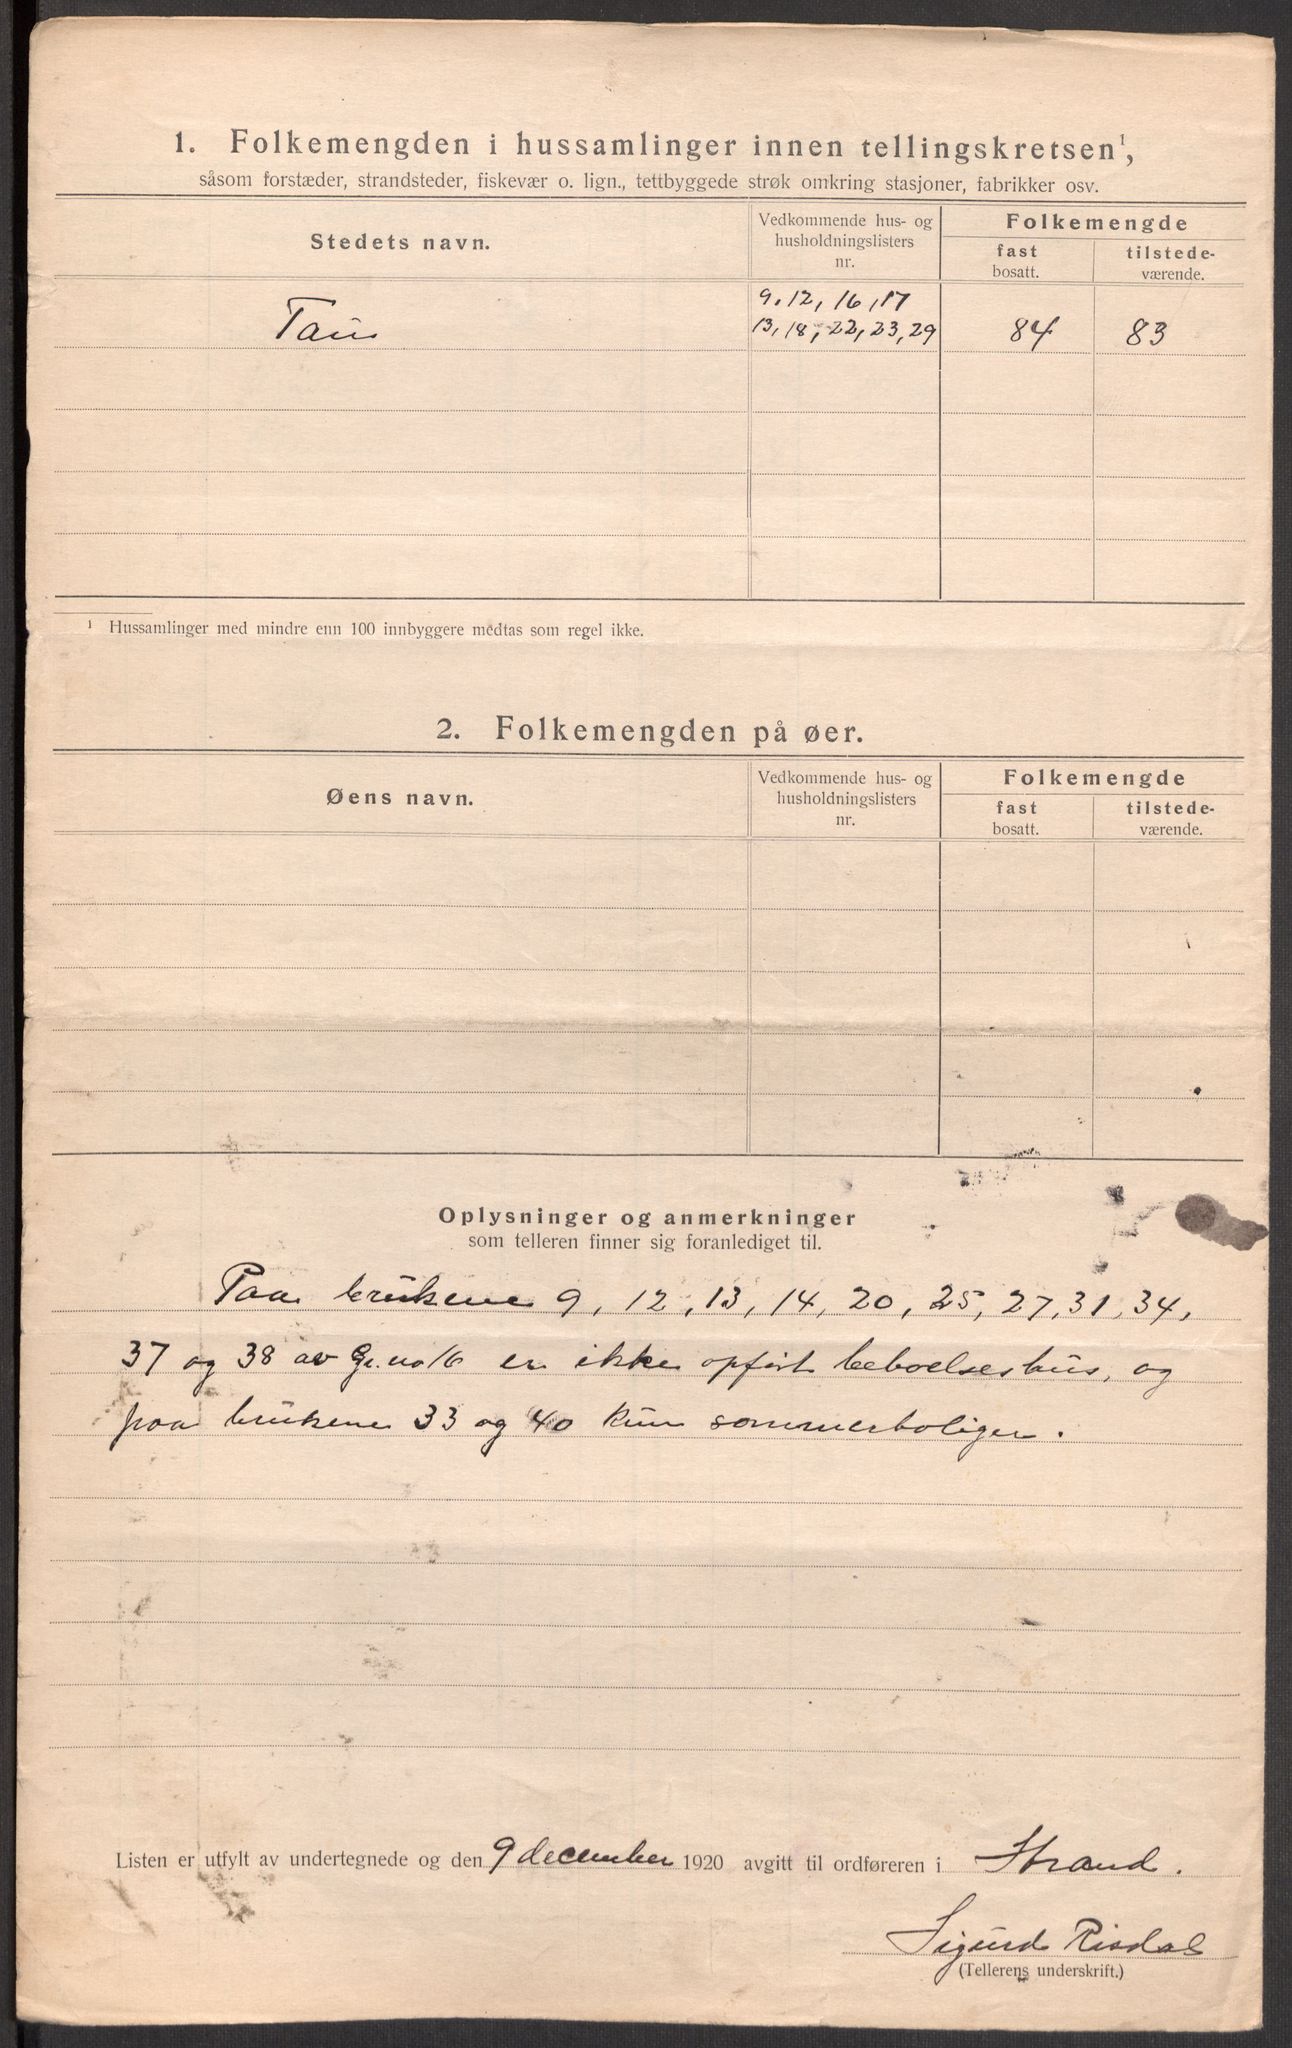 1. Folkemengden i hussamlinger innen tellingskretsen¹,
såsom forstæder, strandsteder, fiskevær o. lign., tettbyggede strøk omkring stasjoner, fabrikker osv.
Stedets navn.
Vedkommende hus- og
husholdningslisters
nr.
Folkemengde
fast
bosatt.
tilstede-
værende.
9, 12, 16, 17
Tau 13, 18, 22, 23, 29 84 83
¹ Hussamlinger med mindre enn 100 innbyggere medtas som regel ikke.
2. Folkemengden på øer.
Øens navn.
Vedkommende hus- og
husholdningslisters
nr.
Folkemengde
fast
bosatt.
tilstede-
værende.
Oplysninger og anmerkninger
som telleren finner sig foranlediget til.
Paa brukene 9, 12, 13, 14, 20, 25, 27, 31, 34,
37 og 38 av Gr. no 16 er ikke opført beboelseshus, og
paa brukene 33 og 40 kun sommerboliger.
Listen er utfylt av undertegnede og den 9 december 1920 avgitt til ordføreren i Strand.
Sigurd Risdal
(Tellerens underskrift.)